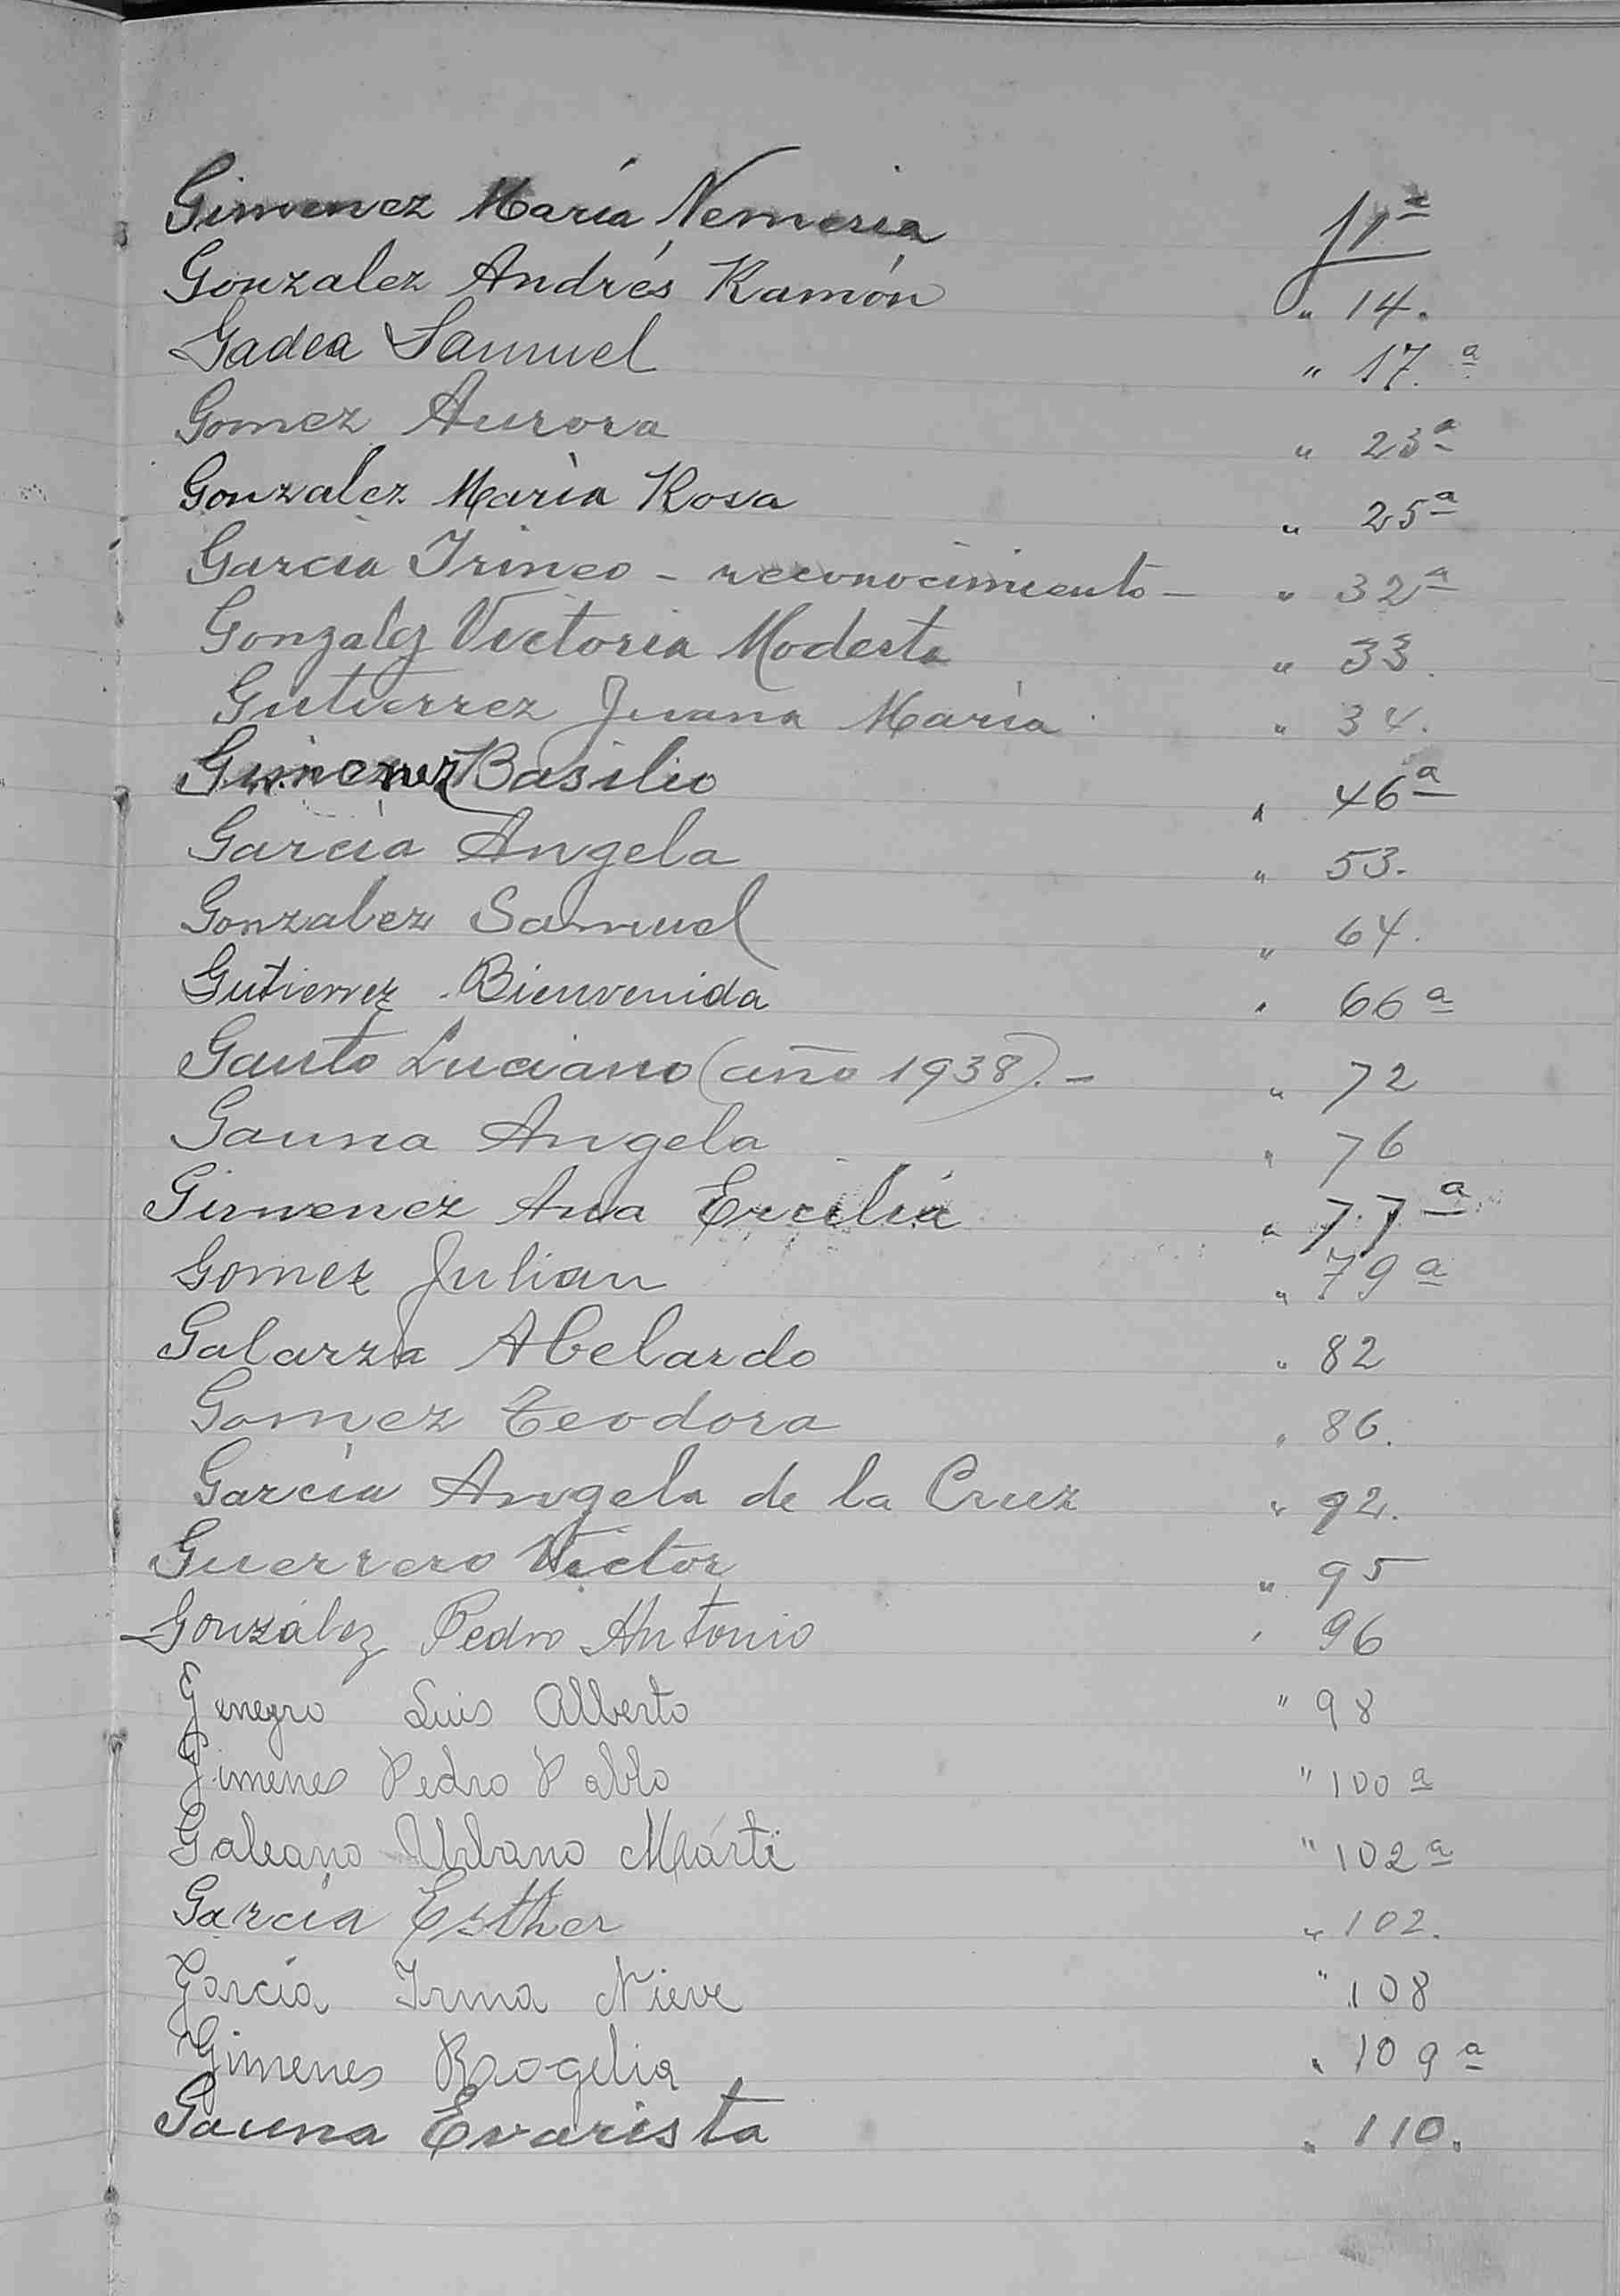 Gimenez María Nemeria f 1ª
Gonzalez Andrés Ramón " 14.
Gadea Samuel " 17.ª
Gomez Aurora " 23ª
Gonzalez María Rosa " 25ª
García Irineo - reconocimiento - " 32ª
Gonzalez Victoria Modesta " 33.
Gutierrez Juana María " 34.
Gimenez Basilio " 46ª
García Angela " 53.
Gonzalez Samuel " 64.
Gutierrez Bienvenida " 66ª
Gauto Luciano (año 1938). - " 72
Gauna Angela " 76
Gimenez Ana Ercilia " 77ª
Gomez Julian " 79ª
Galarza Abelardo " 82
Gomez Teodora " 86.
García Angela de la Cruz " 92.
Guerrero Victor " 95
González Pedro Antonio " 96
Genegro Luis Alberto " 98
Gimenes Pedro Pablo " 100ª
Galeano Urbano Márti " 102ª
García Esther " 102.
García Irma Nieve " 108
Gimenes Rogelia " 109ª
Gauna Evarista " 110.